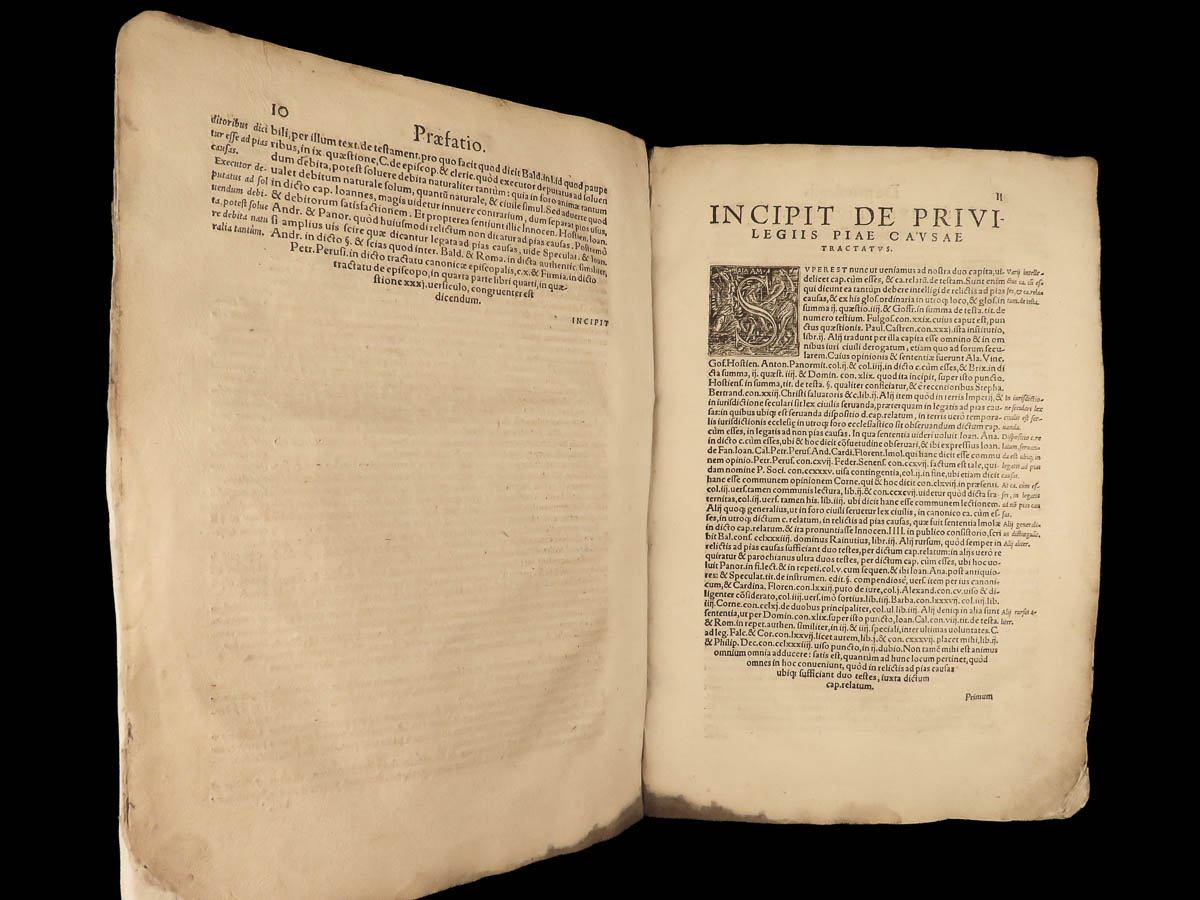 10
Præfatio.
ditoribus dici
tur esse ad pias
causas.
Executor de-
putatus ad sol
uendum debi-
ta, potest solue
re debita natu
ralia tantùm.
bili, per illum text. de testament. pro quo facit quod dicit Bald. in l. id quod paupe
ribus, in ix. quæstione, C. de episcop. & cleric. quòd executor deputatus ad soluen
dum debita, potest soluere debita naturaliter tantùm: quia in foro animæ tantum
ualet debitum naturale solum, quantũ naturale, & ciuile simul. Sed aduerte quod
in dicto cap. Ioannes, magis uidetur innuere contrarium, dum separat pios usus,
& debitorum satisfactionem. Et propterea sentiunt illic Innocen. Hostien. Ioan.
Andr. & Panor. quòd huiusmodi relictum non dicatur ad pias causas. Postremò
si amplius uis scire quæ dicantur legata ad pias causas, uide Speculat. & Ioan.
Andr. in dicto §. & scias quod inter. Bald. & Roma. in dicta authentic. similiter,
Petr. Perusi. in dicto tractatu canonicæ episcopalis, c.x. & Firmia. in dicto
tractatu de episcopo, in quarta parte libri quarti, in quæ-
stione xxxj. uersiculo, congruenter est
dicendum.
INCIPIT
11
INCIPIT DE PRIVI-
LEGIIS PIAE CAVSAE
TRACTATVS.
S
VPEREST nunc ut ueniamus ad nostra duo capita, ui-
delicet cap. cùm esses, & ca. relatũ. de testam. Sunt enim
qui dicunt ea tantùm debere intelligi de relictis ad pias
causas, & ex his glos. ordinaria in utroq; loco, & glos. in
summa ij. quæstio. iiij. & Goffr. in summa de testa. tit. de
numero testium. Fulgos. con. xxix. cuius caput est, pun
ctus quæstionis. Paul. Castren. con. xxxj. ista institutio,
libr. ij. Alij tradunt per illa capita esse omnino & in om
nibus iuri ciuili derogatum, etiam quo ad forum secu-
larem. Cuius opinionis & sententiæ fuerunt Ala. Vinc.
Gof. Hostien. Anton. Panormit. col. ij. & col. iiij. in dicto c. cùm esses, & Brix. in di
cta summa, ij. quæst. iiij. & Domin. con. xlix. quod ita incipit, super isto puncto.
Hostiens. in summa, tit. de testa. §. qualiter conficiatur, & è recentioribus Stepha.
Bertrand. con. xxij. Christi saluatoris &c. lib. ij. Alij item quòd in terris Imperij, &
in iurisdictione seculari sit lex ciuilis seruanda, præterquam in legatis ad pias cau-
sas: in quibus ubiq; est seruanda dispositio d. cap. relatum, in terris uerò tempora-
lis iurisdictionis ecclesię in utroq; foro ecclesiastico sit obseruandum dictum cap.
cùm esses, in legatis ad non pias causas. In qua sententia uideri uoluit Ioan. Ana.
in dicto c. cùm esses, ubi & hoc dicit cõsuetudine obseruari, & ibi expressius Ioan.
de Fan. Ioan. Cal. Petr. Perus. And. Cardi. Florent. Imol. qui hanc dicit esse commu
nem opinio. Petr. Perus. con. cxvij. Feder. Senens. con. ccxvij. factum est tale, qui-
dam nomine P. Soci. con. ccxxxv. uisa contingentia, col. ij. in fine, ubi etiam dicit
hanc esse communem opinionem Corne. qui & hoc dicit con. clxviij. in præsenti.
col. iij. uers. tamen communis lectura, lib. ij. & con. ccxcvij. uidetur quòd dicta fra-
ternitas, col. iij. uers. tamen his. lib. iiij. ubi dicit hanc esse communem lectionem.
Alij quoq; generalius, ut in foro ciuili seruetur lex ciuilis, in canonico ca. cùm es-
ses, in utroq; dictum c. relatum, in relictis ad pias causas, quæ fuit sententia Imolæ
in dicto cap. relatum. & ita pronuntiasse Innocen. IIII. in publico consistorio, scri
bit Bal. cons. cclxxxiiij. dominus Rainutius, libr. iij. Alij rursum, quòd semper in
relictis ad pias causas sufficiant duo testes, per dictum cap. relatum: in alijs uerò re
quiratur & parochianus ultra duos testes, per dictum cap. cùm esses, ubi hoc uo-
luit Panor. in fi. lect. & in repeti. col. v. cum sequen. & ibi Ioan. Ana. post antiquio-
res: & Speculat. tit. de instrumen. edit. §. compendiosè, uers. item per ius canoni-
cum, & Cardina. Floren. con. lxxiij. puto de iure, col. j. Alexand. con. cv. uiso & di-
ligenter cõsiderato, col. iiij. uers. imò fortius. lib. iiij. Barba. con. lxxxvij. col. iij. lib.
iiij. Corne. con. cclxj. de duobus principaliter, col. ul. lib. iiij. Alij deniq; in alia sunt
sententia, ut per Domin. con. xlix. super isto puncto, Ioan. Cal. con. viij. tit. de testa.
& Rom. in repet. authen. similiter, in iij & iiij. speciali, inter ultimas uoluntates. C.
ad leg. Falc. & Cor. con. lxxvij. licet autem, lib. j. & con. cxxxvij. placet mihi, lib. ij.
& Philip. Dec. con. cclxxxiiij. uiso puncto, in ij. dubio. Non tamẽ mihi est animus
omnium omnia adducere: satis est, quantùm ad hunc locum pertinet, quòd
omnes in hoc conueniunt, quòd in relictis ad pias causas
ubiq; sufficiant duo testes, iuxta dictum
cap. relatum.
Varij intelle-
ctus ca. cũ es-
ses, & ca. rela
tum. de testa.
In iurisdictio-
ne seculari lex
ciuilis est ser-
uanda.
Dispositio c. re
latum, seruan-
da est ubiq; in
legatis ad pias
causas.
At ca. cùm es-
ses, in legatis
ad nõ pias cau
sas.
Alij generali-
us distinguũt.
Alij aliter.
Alij rursus a-
liter.
Primum